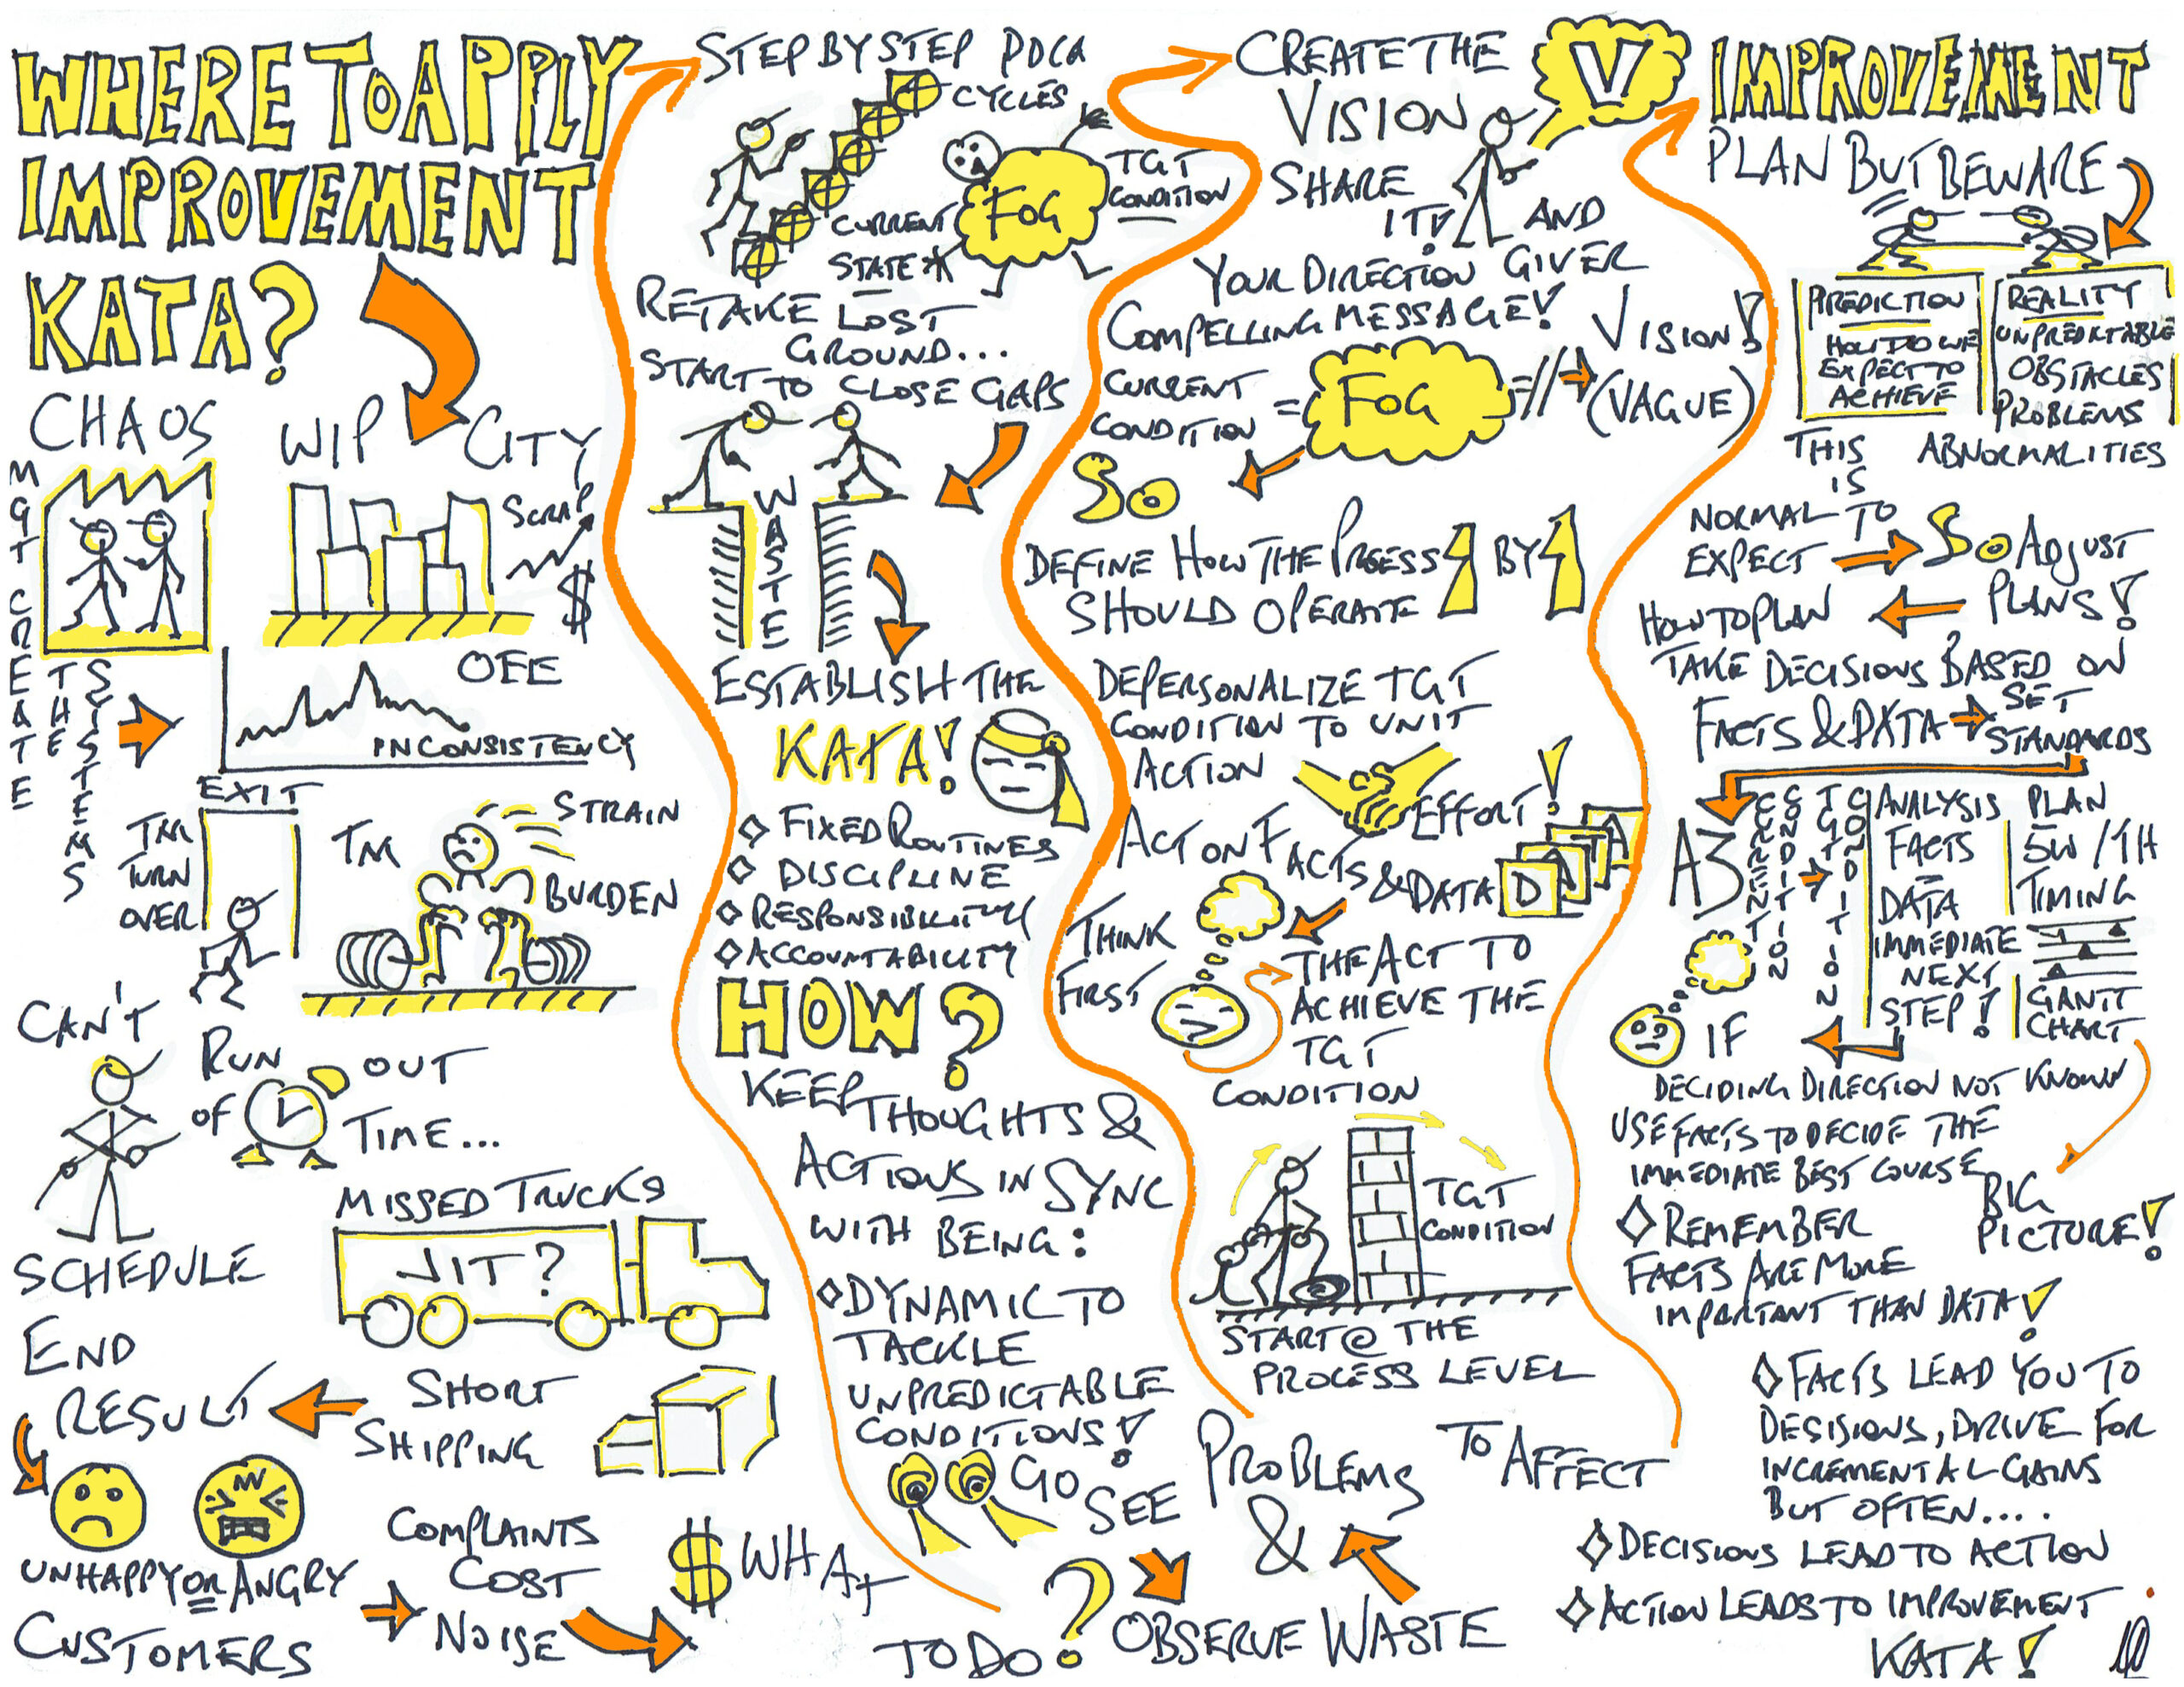 WHERE TO APPLY
IMPROVEMENT
KATA?
CHAOS
MGT CREATE
THE
SYSTEMS
WIP CITY
SCRAP
$
OEE
INCONSISTENCY
EXIT
TM
TURN
OVER
TM
STRAIN
BURDEN
CAN'T
RUN OUT
OF TIME...
SCHEDULE
MISSED TRUCKS
JIT?
END
RESULT
SHORT
SHIPPING
UNHAPPY OR ANGRY
CUSTOMERS
COMPLAINTS
COST
NOISE
$ WHAT
TO DO?
STEP BY STEP PDCA
CYCLES
TGT
CONDITION
FOG
CURRENT
STATE*
RETAKE LOST
GROUND...
START TO CLOSE GAPS
WASTE
ESTABLISH THE
KATA!
◇ FIXED ROUTINES
◇ DISCIPLINE
◇ RESPONSIBILITY
◇ ACCOUNTABILITY
HOW?
KEEP THOUGHTS &
ACTIONS IN SYNC
WITH BEING:
◇ DYNAMIC TO
TACKLE
UNPREDICTABLE
CONDITIONS!
GO SEE
OBSERVE WASTE
&
PROBLEMS
CREATE THE
VISION
V
SHARE
IT! AND
YOUR DIRECTION GIVER
COMPELLING MESSAGE!
CURRENT
CONDITION
= FOG =//
VISION!
(VAGUE)
SO
DEFINE HOW THE PROCESS
SHOULD OPERATE
1 BY 1
DEPERSONALIZE TGT
CONDITION TO UNIT
ACTION
EFFORT!
ACT ON FACTS & DATA
D
A
THINK
FIRST
THE ACT TO
ACHIEVE THE
TGT
CONDITION
TGT
CONDITION
START @ THE
PROCESS LEVEL
TO AFFECT
IMPROVEMENT
PLAN BUT BEWARE
PREDICTION
HOW DO WE
EXPECT TO
ACHIEVE
REALITY
UNPREDICTABLE
OBSTACLES
PROBLEMS
ABNORMALITIES
THIS
IS
NORMAL TO
EXPECT
SO ADJUST
PLANS!
HOW TO PLAN
TAKE DECISIONS BASED ON
FACTS & DATA
SET
STANDARDS
A3
CURRENT
CONDITION
TGT
CONDITION
ANALYSIS
FACTS
=
DATA
IMMEDIATE
NEXT
STEP!
PLAN
5W/1H
TIMING
GANTT
CHART
IF
DECIDING DIRECTION NOT KNOWN
USE FACTS TO DECIDE THE
IMMEDIATE BEST COURSE
BIG
PICTURE!
◇ REMEMBER
FACTS ARE MORE
IMPORTANT THAN DATA!
◇ FACTS LEAD YOU TO
DESISIONS, DRIVE FOR
INCREMENTAL GAINS
BUT OFTEN....
◇ DECISIONS LEAD TO ACTION
◇ ACTION LEADS TO IMPROVEMENT
KATA!